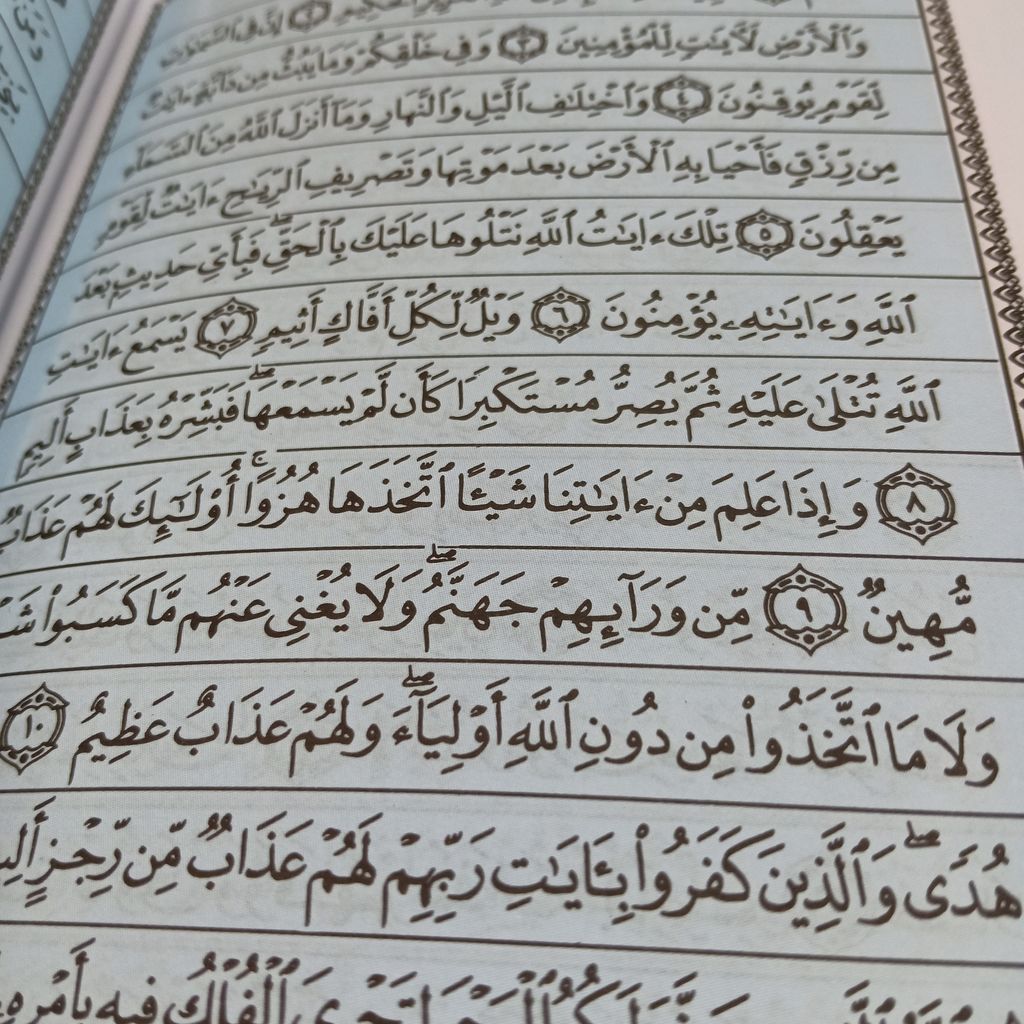 ٱلْحَكِيمِ ٢ إِنَّ فِى ٱلسَّمَٰوَٰتِ
وَٱلْأَرْضِ لَءَايَٰتٍ لِّلْمُؤْمِنِينَ ٣ وَفِى خَلْقِكُمْ وَمَا يَبُثُّ مِن دَآبَّةٍ ءَايَٰتٌ
لِّقَوْمٍ يُوقِنُونَ ٤ وَٱخْتِلَٰفِ ٱلَّيْلِ وَٱلنَّهَارِ وَمَآ أَنزَلَ ٱللَّهُ مِنَ ٱلسَّمَآءِ
مِن رِّزْقٍ فَأَحْيَا بِهِ ٱلْأَرْضَ بَعْدَ مَوْتِهَا وَتَصْرِيفِ ٱلرِّيَٰحِ ءَايَٰتٌ لِّقَوْمٍ
يَعْقِلُونَ ٥ تِلْكَ ءَايَٰتُ ٱللَّهِ نَتْلُوهَا عَلَيْكَ بِٱلْحَقِّۖ فَبِأَىِّ حَدِيثٍۭ بَعْدَ
ٱللَّهِ وَءَايَٰتِهِۦ يُؤْمِنُونَ ٦ وَيْلٌ لِّكُلِّ أَفَّاكٍ أَثِيمٍ ٧ يَسْمَعُ ءَايَٰتِ
ٱللَّهِ تُتْلَىٰ عَلَيْهِ ثُمَّ يُصِرُّ مُسْتَكْبِرًا كَأَن لَّمْ يَسْمَعْهَاۖ فَبَشِّرْهُ بِعَذَابٍ أَلِيمٍ
٨ وَإِذَا عَلِمَ مِنْ ءَايَٰتِنَا شَيْـًٔا ٱتَّخَذَهَا هُزُوًاۚ أُو۟لَٰٓئِكَ لَهُمْ عَذَابٌ
مُّهِينٌ ٩ مِّن وَرَآئِهِمْ جَهَنَّمُۖ وَلَا يُغْنِى عَنْهُم مَّا كَسَبُوا۟
وَلَا مَا ٱتَّخَذُوا۟ مِن دُونِ ٱللَّهِ أَوْلِيَآءَۖ وَلَهُمْ عَذَابٌ عَظِيمٌ ١٠
هُدًىۖ وَٱلَّذِينَ كَفَرُوا۟ بِـَٔايَٰتِ رَبِّهِمْ لَهُمْ عَذَابٌ مِّن رِّجْزٍ
ٱلْفُلْكُ فِيهِ بِأَمْرِهِۦ